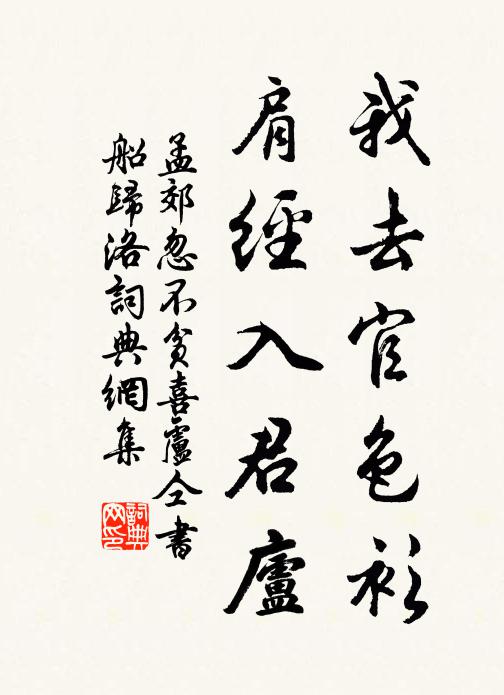 我去官色衫
肩經入君廬
孟郊忽不貧喜盧仝書
船歸洛詞典網集
詞典網印